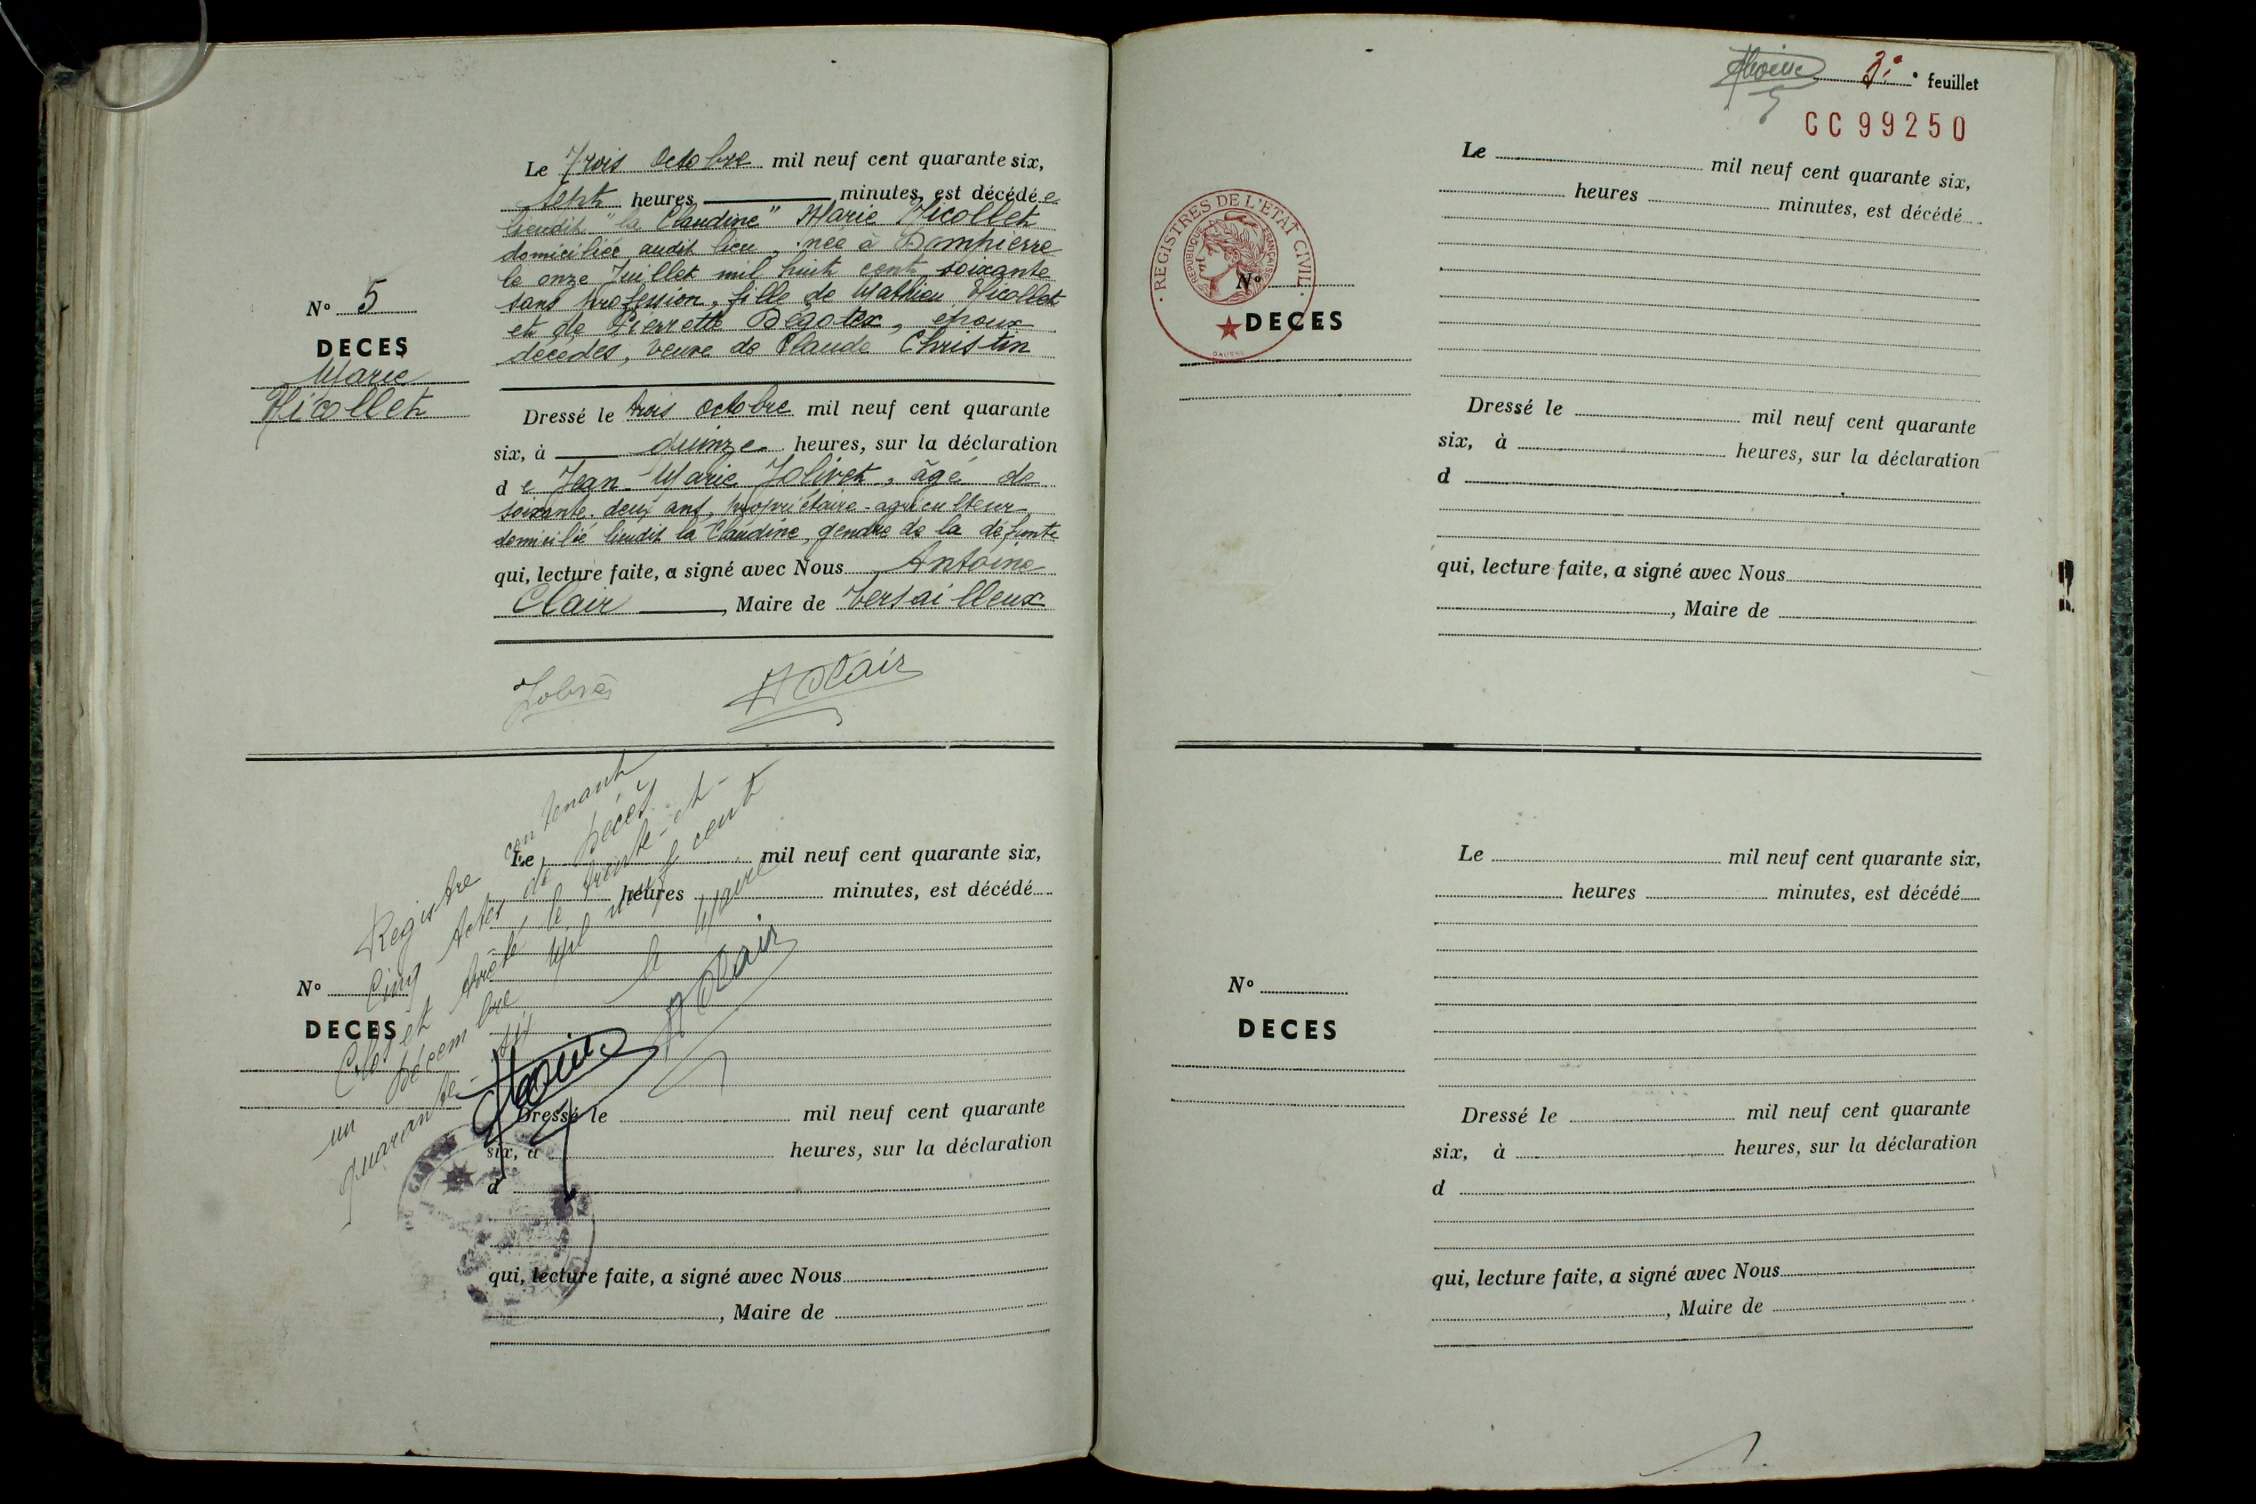 N° 5
DECES
Marie
Nicollet
Le Trois Octobre mil neuf cent quarante six,
sept heures minutes, est décédée
lieudit "la Claudine" Marie Nicollet
domiciliée audit lieu, née à Dompierre
le onze Juillet mil huit cent soixante
sans profession, fille de Mathieu Nicollet
et de Pierrette Dégotex, époux
décédés, veuve de Claude Christin
Dressé le trois Octobre mil neuf cent quarante
six, à quinze heures, sur la déclaration
de Jean-Marie Jolivet, âgé de
soixante-deux ans, propriétaire-agriculteur
domicilié lieudit la Claudine, gendre de la défunte
qui, lecture faite, a signé avec Nous Antoine
Clair, Maire de Versailleux
A Clair
Registre contenant
Cinq Actes de Décès
Clos et Arrêté le trente-et-
un Décembre Mil neuf cent
quarante-six
le Maire
A Clair
N°
DECES
Le mil neuf cent quarante six,
heures minutes, est décédé
Dressé le mil neuf cent quarante
six, à heures, sur la déclaration
d
qui, lecture faite, a signé avec Nous
, Maire de
3e feuillet
CC 99250
REGISTRES DE L'ETAT CIVIL
REPUBLIQUE FRANÇAISE
N°
DECES
Le mil neuf cent quarante six,
heures minutes, est décédé
Dressé le mil neuf cent quarante
six, à heures, sur la déclaration
d
qui, lecture faite, a signé avec Nous
, Maire de
N°
DECES
Le mil neuf cent quarante six,
heures minutes, est décédé
Dressé le mil neuf cent quarante
six, à heures, sur la déclaration
d
qui, lecture faite, a signé avec Nous
, Maire de